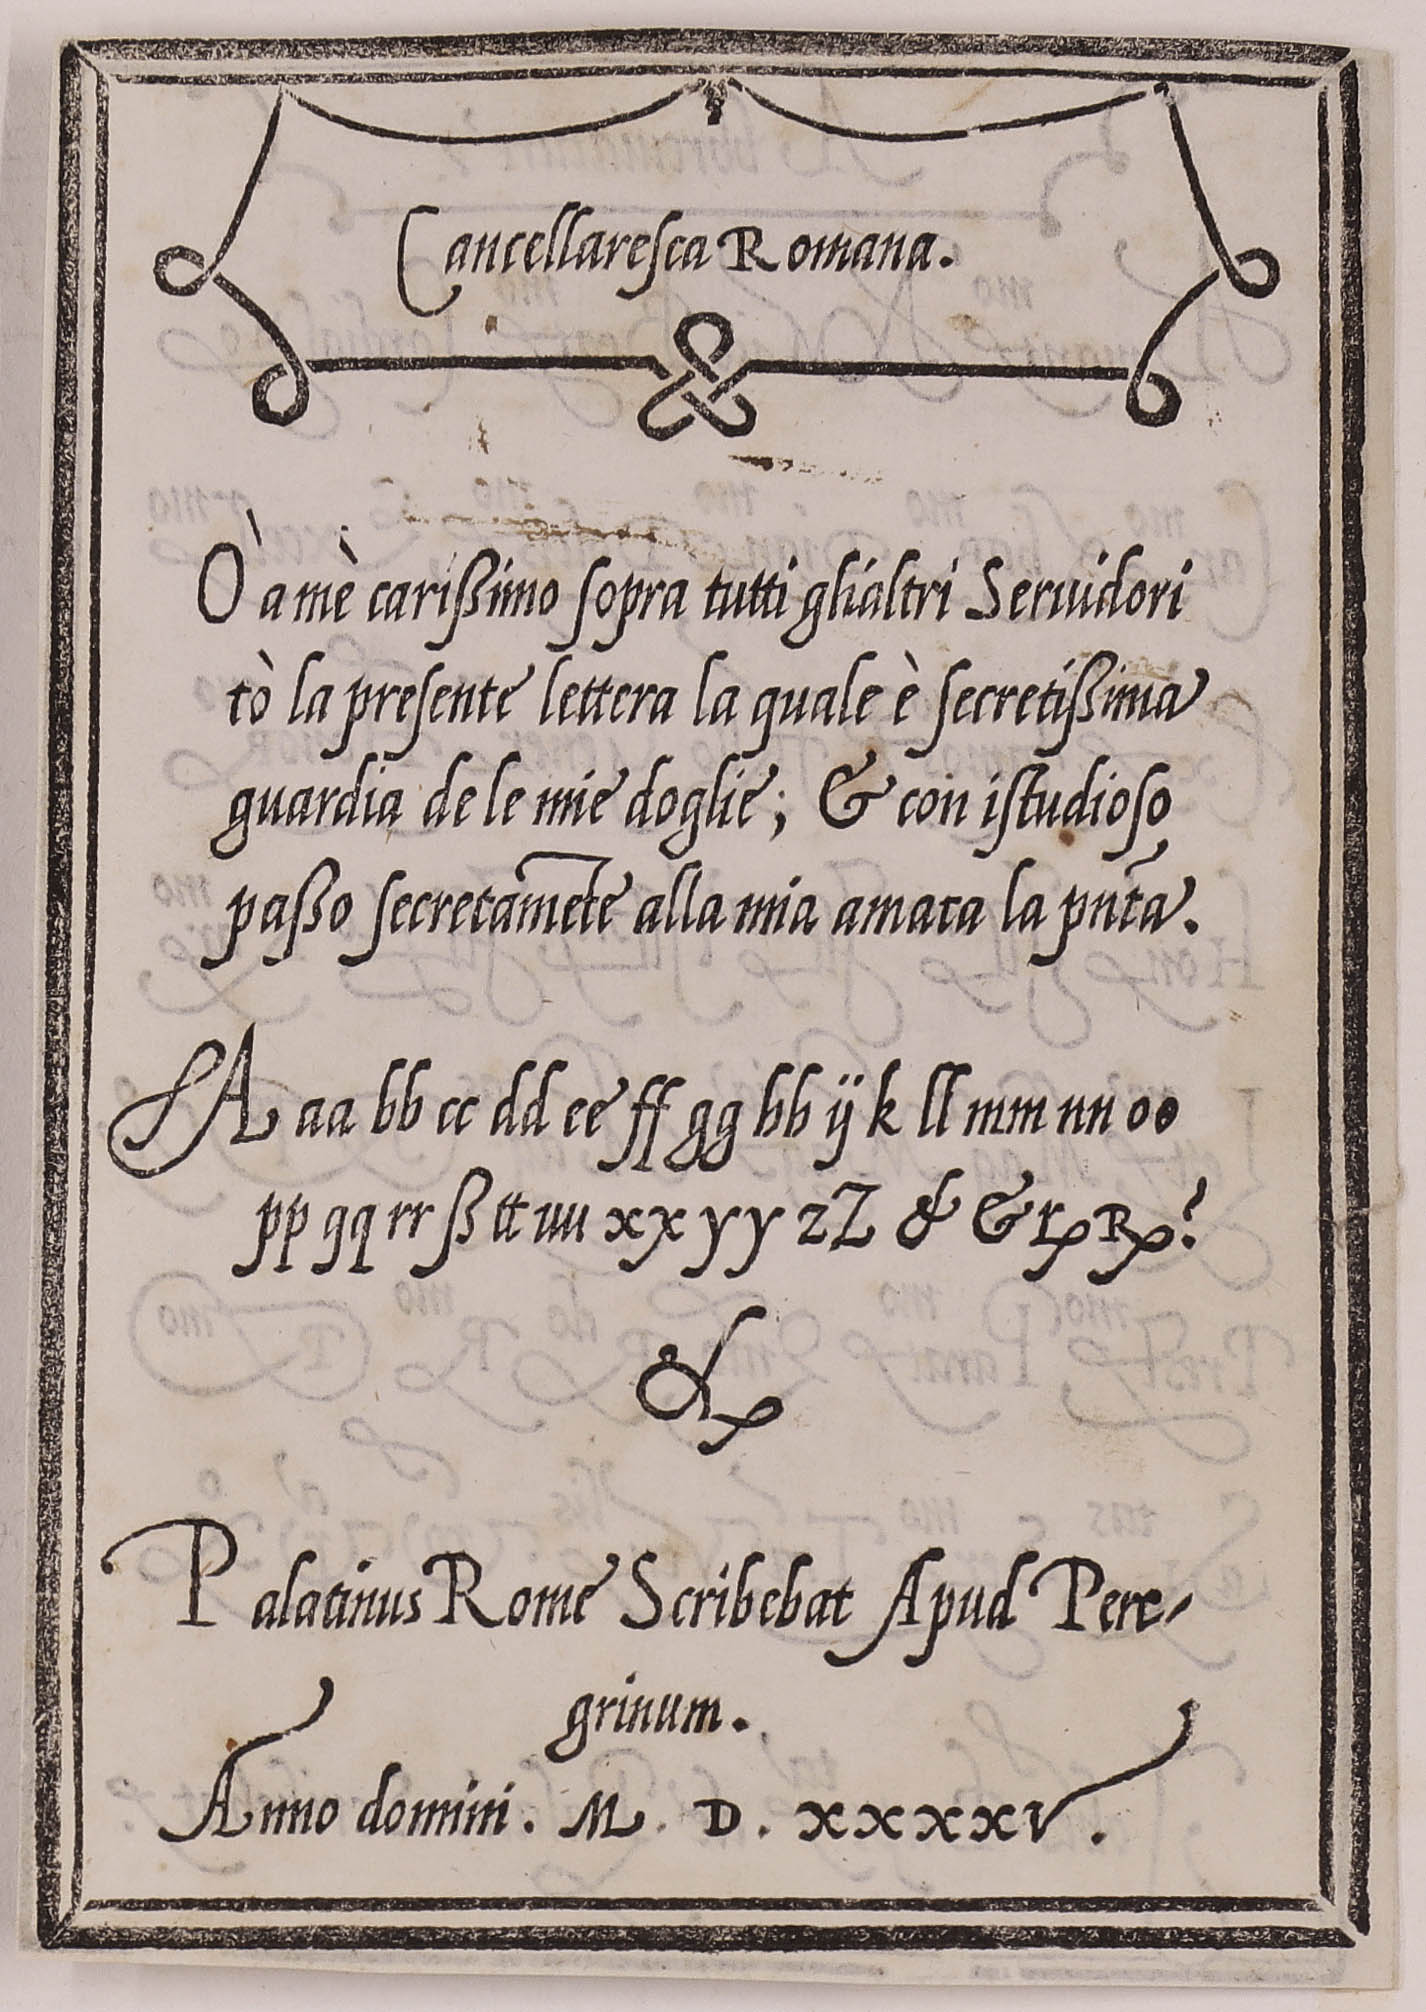 Cancellaresca Romana.
Ò a mè carißimo sopra tutti glialtri Seruidori
tò la presente lettera la quale è secretißima
guardia de le mie doglie; & con istudioso
paßo secretam̄ete alla mia amata la pñta.
A aa bb cc dd ee ff gg hh ij k ll mm nn oo
pp qq rr ß tt uu xx yy zZ & & rp Rp?
&
Palatinus Rome Scribebat Apud Pere-
grinum.
Anno domini. M. D. xxxxv.